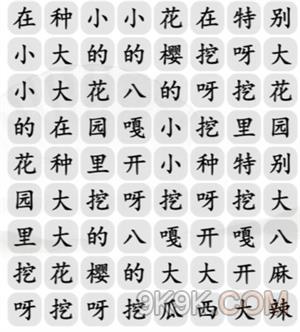 在种小小花在特别
小大的的樱挖呀大
小大花八的呀挖花
的在园嘎小挖里园
花种里开小种特别
园大挖呀挖呀挖大
里大的八嘎开嘎八
挖花樱的大大开麻
呀挖呀挖瓜西大辣
9K9K.COM